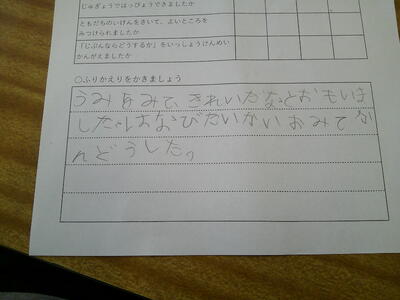 じゅぎょうではっぴょうできましたか
ともだちのいけんをきいて、よいところを
みつけられましたか
「じぶんならどうするか」をいっしょうけんめい
かんがえましたか
○ふりかえりをかきましょう
うみをみて、きれいだなとおもいま
した。はなびたいかいおみてか
んどうした。